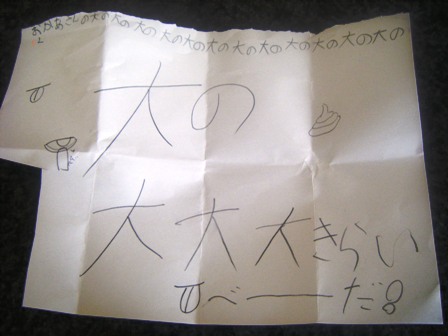 おかあさんの大の大の大の大の大の大の大の大の大の大の大の大の
大の
大大大きらい
べーだ!